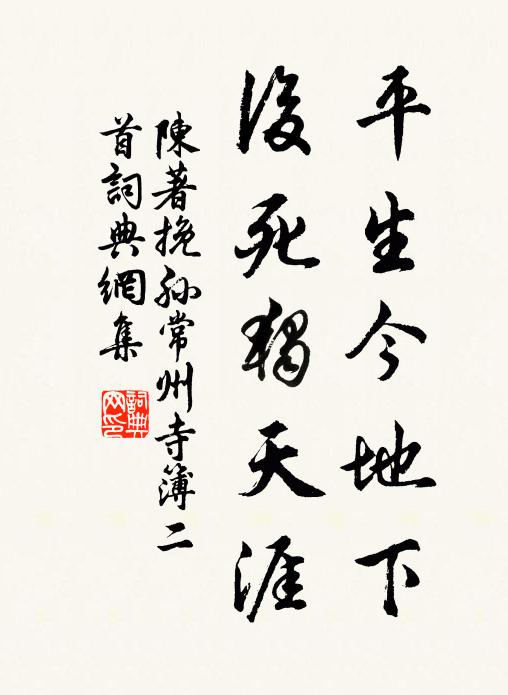 平生今地下
後死獨天涯
陳著挽孙常州寺簿二
首詞典網集
詞典網印